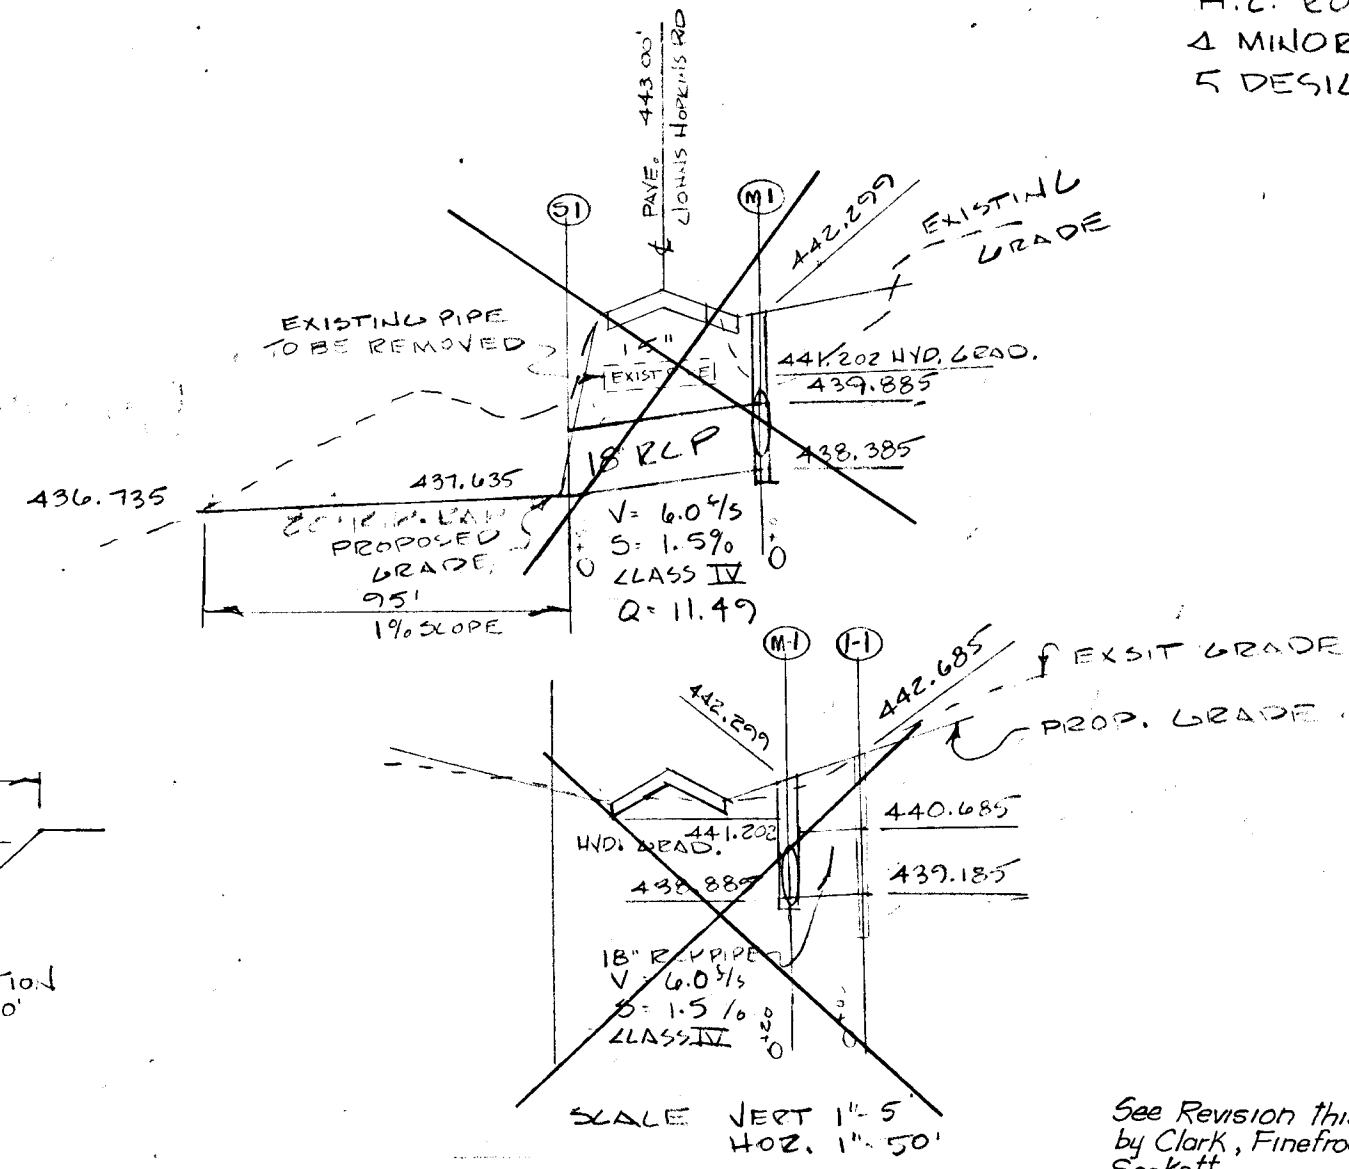 H.C.
4 MINOR
5
℄ PAVE. 443.00'
JOHNS HOPKINS RD
S1
M1
442.299
EXISTING
GRADE
EXISTING PIPE
TO BE REMOVED
15"
EXIST
441.202 HYD. GRAD.
439.885
18 RCP
438.385
436.735
437.635
PROPOSED
GRADE
V= 6.0 f/s
S= 1.5%
CLASS IV
Q= 11.49
95'
1% SLOPE
M-1
I-1
442.299
442.685
EXSIT GRADE
PROP. GRADE
441.202
HYD. GRAD.
440.685
438.885
439.185
18" RCP PIPE
V= 6.0 f/s
S= 1.5 %
CLASS IV
0+20
SCALE VERT 1"= 5'
HOZ. 1"= 50'
TION
0'
See Revision this
by Clark, Finefro